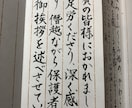 員の皆様におかれまし
足労くださり、深く感
り僭越ながら保護者
御挨拶を述べさせて